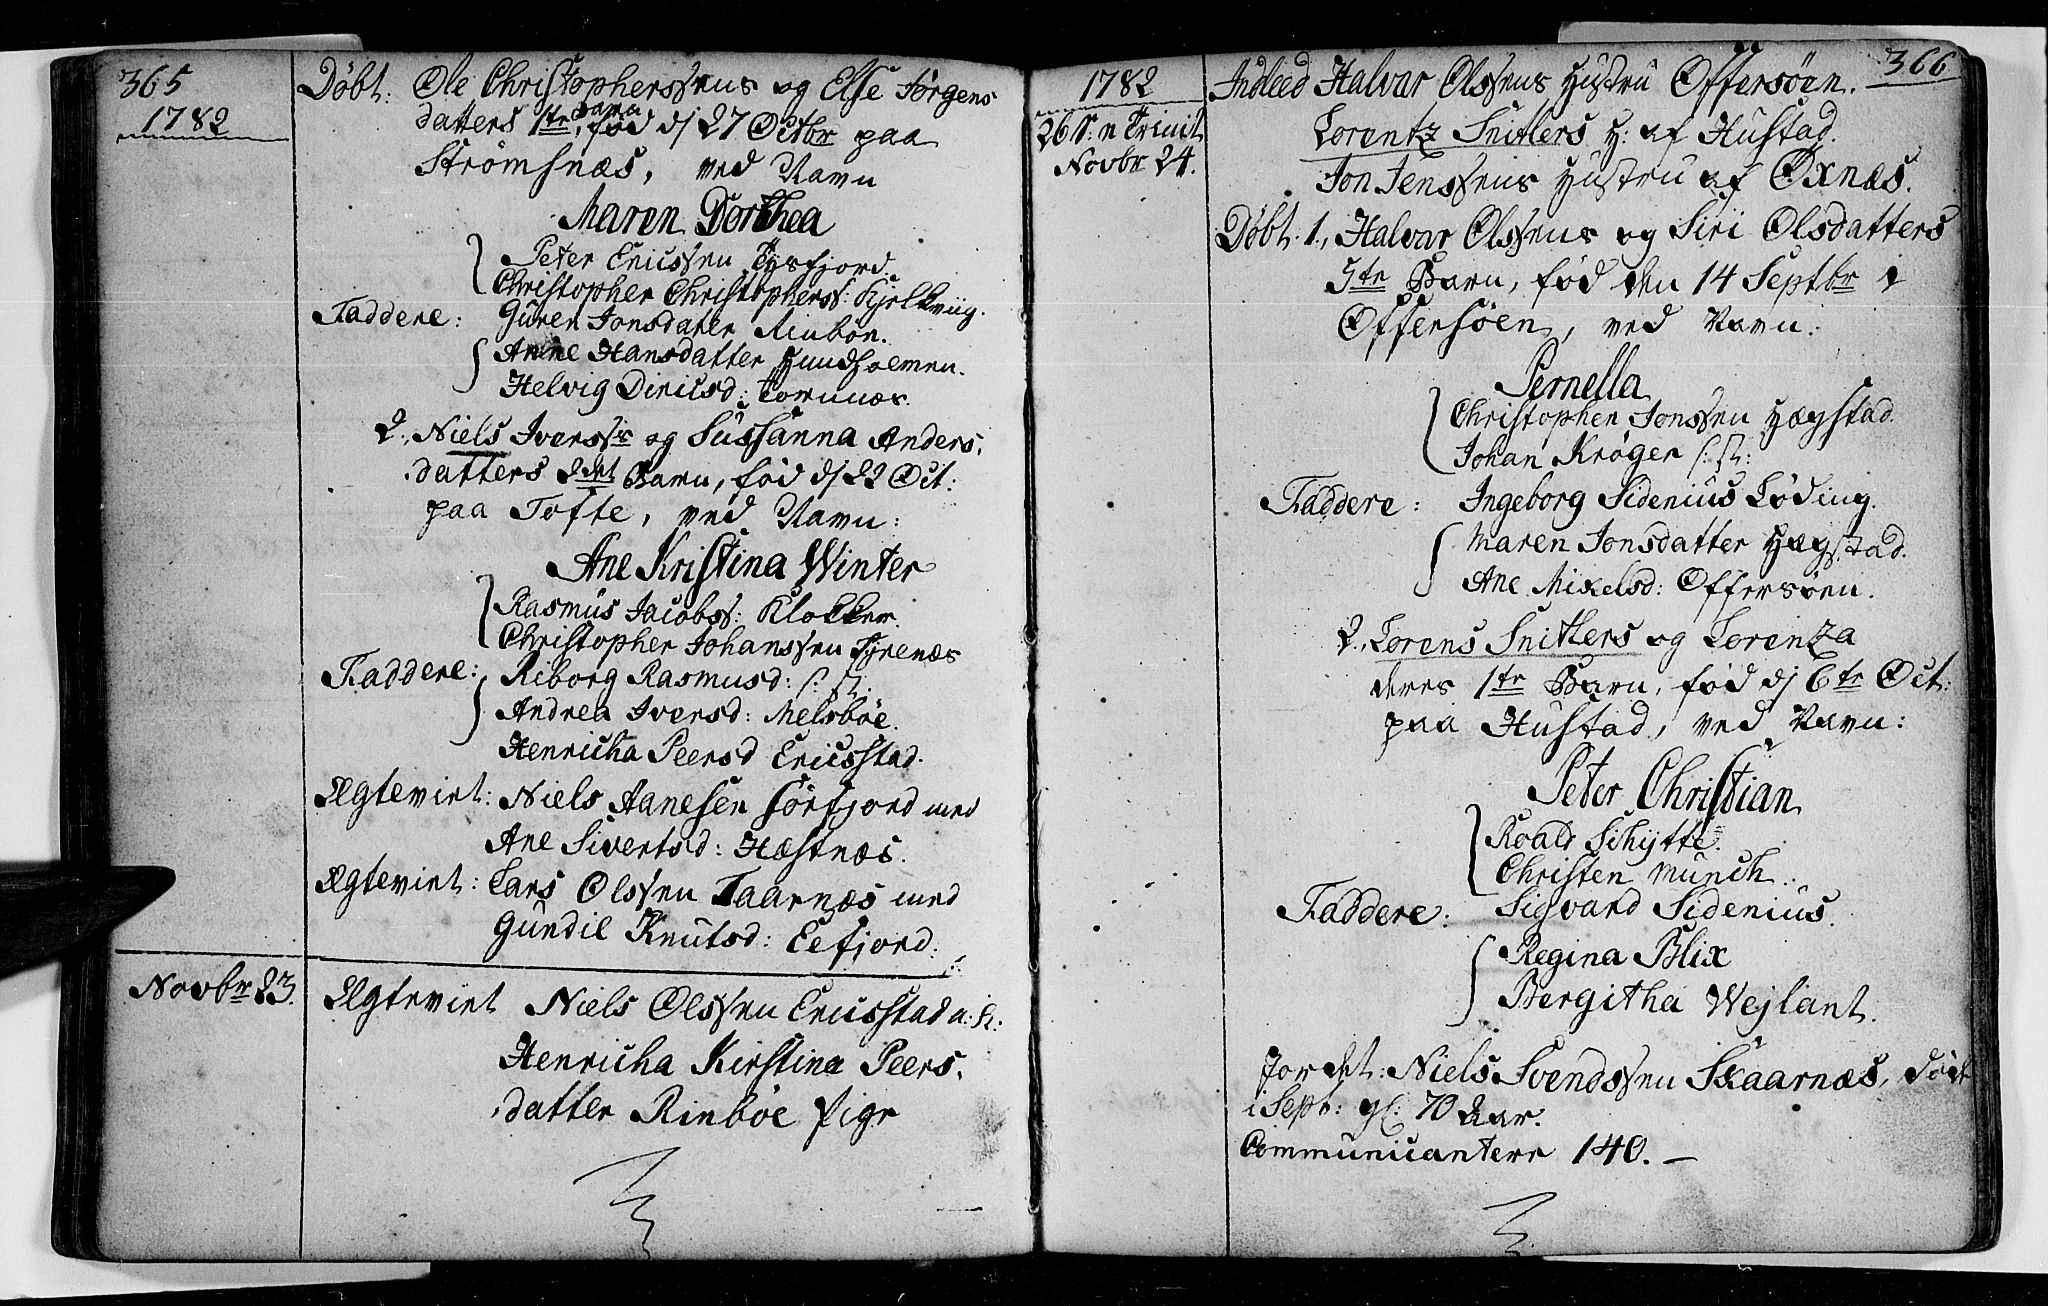 365
1782
Døbt: Ole Christopherssens og Else Jørgens
datters 1te Barn, fød dj 27 Octbr paa
Strømsnæs, ved Navn
Maren Dorthea
Peter Ericssen Tysfjord.
Christopher Christophers: Kjelkviig.
Faddere: Guren Jonsdater Rinbøe.
Anne Hansdatter Hundholmen.
Helvig Diricsd: Kornnæs.
2. Niels Iverss og Sussanna Anders,
datters 2det Barn, fød dj 22 Oct:
paa Tofte, ved Navn:
Ane Kristina Winter
Rasmus Jacobss: Klokker.
Christopher Johanssen Tyrenæs
Faddere: Riborg Rasmusd: s: st:
Andrea Iversd: Melsbøe.
Henricha Peersd Ericsstad.
Ægteviet: Niels Aanesen Sørfjord med
Ane Sivertsd: Hæstnæs.
Ægteviet: Lars Olssen Taarnæs med
Gundil Knutsd: Eefjord:
Novbr 23. Ægteviet Niels Olssen Ericsstad u: k:
Henricha Kirstina Peers,
datter Rinbøe Pige
366
1782
26 S: n Trinit
Novbr 24.
Indleed Halvar Olssens Hustru Offersøen.
Lorentz Snitlers H: af Hustad.
Jon Jenssens Hustru af Øxnæs.
Døbt. 1., Halvar Olssens og Siri Olsdatters
5te Barn, fød den 14 Septbr i
Offersøen, ved Navn:
Pernella
Christopher Jonssen Hægstad.
Johan Krøger s: st:
Faddere: Ingeborg Sidenius Løding.
Maren Jonsdatter Hægstad.
Ane Mikelsd: Offersøen.
2., Lorens Snitlers og Lorentza
deres 1te Barn, fød dj 6te Oct:
paa Hustad, ved Navn:
Peter Christian
Roald Schytte.
Christen Munch.
Faddere: Sigvard Sidenius.
Regina Blix
Bergitha Wejlant.
Jordet: Niels Svendssen Skaarnæs, død
i Sept: gl: 70 Aar.
Communicantere 140.